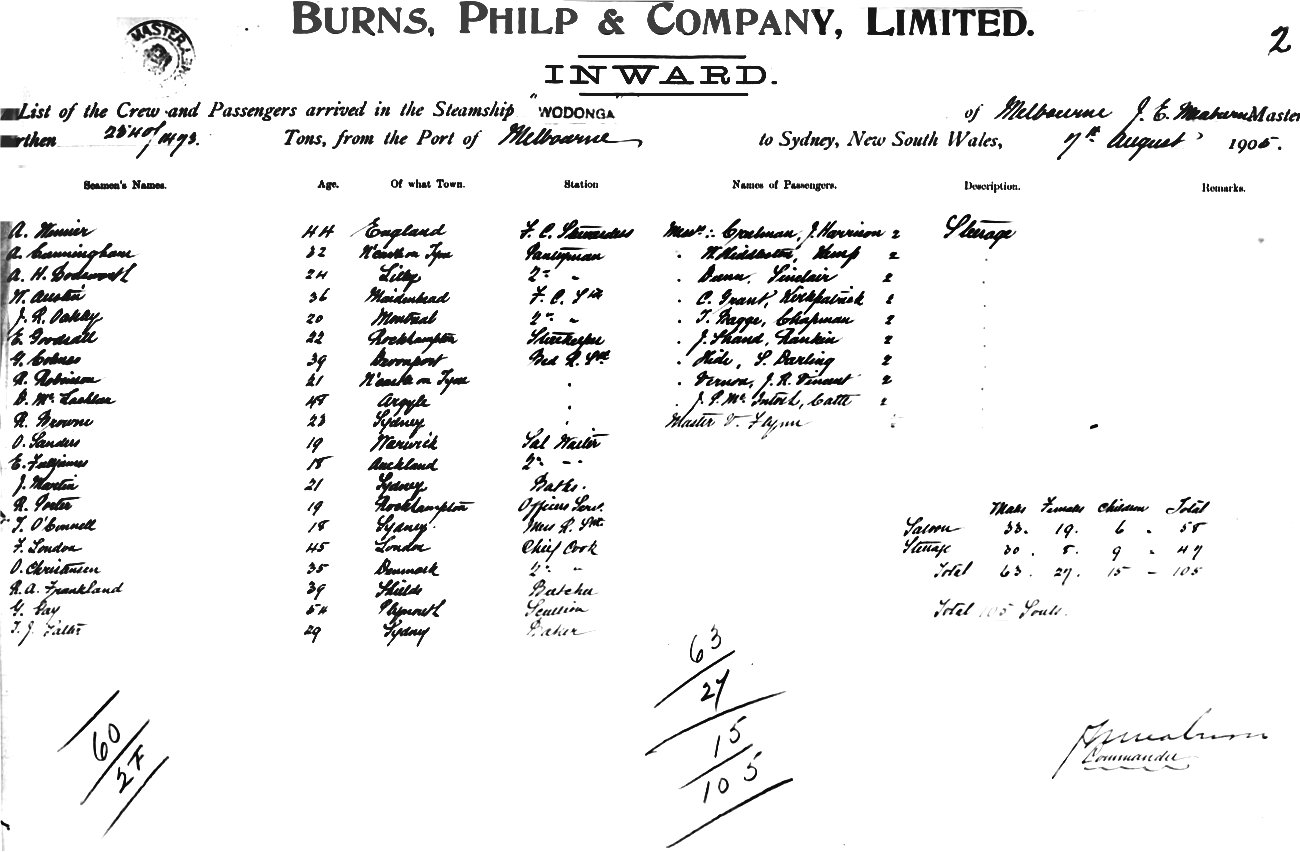 BURNS, PHILP & COMPANY, LIMITED.
2
MASTER
INWARD.
List of the Crew and Passengers arrived in the Steamship "WODONGA" of Melbourne J. E. Meaburn Master
then 2340 1473. Tons, from the Port of Melbourne to Sydney, New South Wales, 7th August 1905.
Seamen's Names. Age. Of what Town. Station Names of Passengers. Description. Remarks.
A. 44 England F. C. Stewardess Messrs:- J. Harrison 2 Steerage
A. Cunningham 32 N'castle on Tyne Pantryman Kemp 2
A. H. Bodsworth 24 2nd " Dunn, Sinclair 2
W. Austin 36 Maidenhead F. C. Std C. Grant, Kirkpatrick 2
J. R. Oakley 20 Montreal 2nd " T. Bagge, Chapman 2
E. Goodsall 22 Rockhampton Storekeeper J. Shand, Rankin 2
G. 39 Devonport Bed R. Std Hide, S. Darling 2
R. Robinson 21 N'castle on Tyne " Vernon, J. R. Vincent 2
D. McLachlan 48 Argyle " J. P. McIntosh, Catte 2
R. Browne 23 Sydney Master V. Flynn
O. Sanders 19 Warwick Sal Waiter
E. 18 Auckland 2nd " "
J. Martin 21 Sydney Baths.
R. Porter 19 Rockhampton Officers Serv. Males Females Children Total
T. O'Connell 18 Sydney Mess R. Std Saloon 33. 19. 6 " 58
F. London 45 London Chief Cook Steerage 30. 8. 9 " 47
O. Christensen 35 Denmark 2nd " Total 63. 27. 15 - 105
R. A. Frankland 39 Shields Butcher
G. Gay 54 Plymouth Scullion Total 105 Souls.
T. J. 29 Sydney Baker
63
27
15
105
60
27
Commander